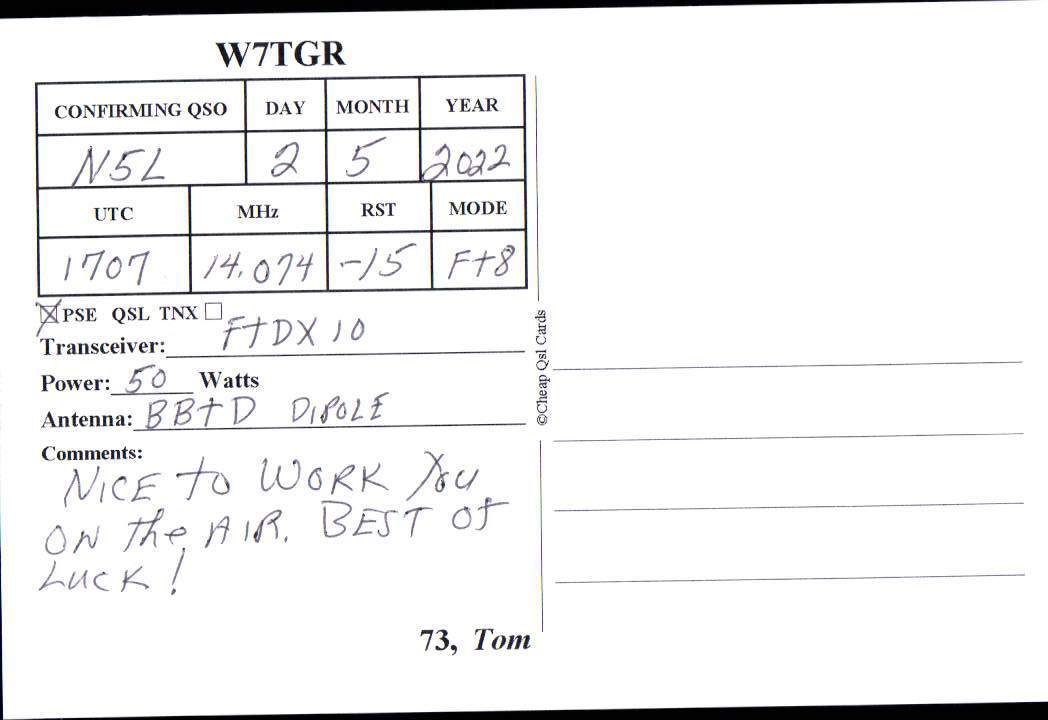 W7TGR
CONFIRMING QSO DAY MONTH YEAR
N5L 2 5 2022
UTC MHz RST MODE
1707 14.074 -15 Ft8
PSE QSL TNX
Transceiver: FtDX 10
Power: 50 Watts
Antenna: BBtD DIPOLE
Comments:
NICE to WORK You
ON the AIR. BEST OF
LUCK!
73, Tom
©Cheap Qsl Cards